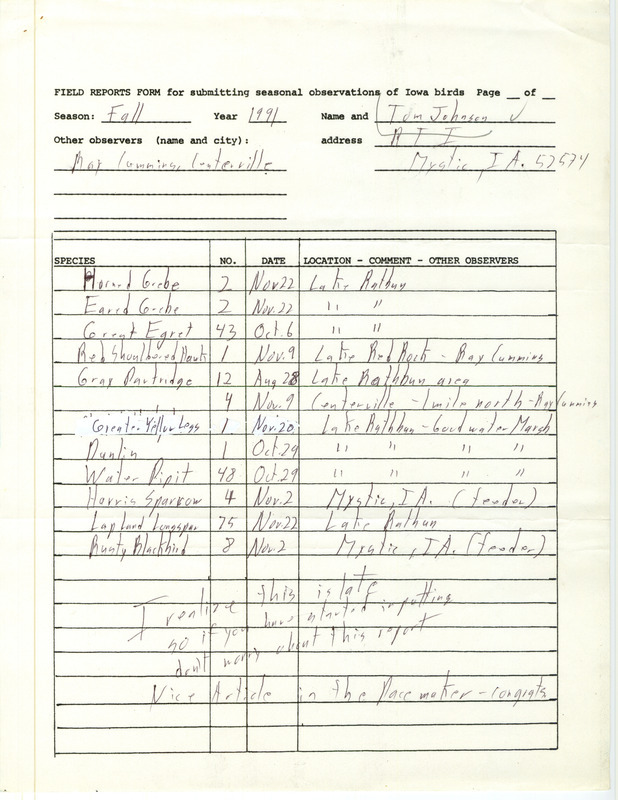 FIELD REPORTS FORM for submitting seasonal observations of Iowa birds Page __ of __
Season: Fall Year 1991 Name and Tom Johnson
Other observers (name and city): address R T 1
Ray Cummins, Centerville Mystic, IA. 52574
SPECIES NO. DATE LOCATION - COMMENT - OTHER OBSERVERS
Horned Grebe 2 Nov 22 Lake Rathbun
Eared Grebe 2 Nov. 22 " "
Great Egret 43 Oct. 6 " "
Red Shouldered Hawk 1 Nov. 9 Lake Red Rock - Ray Cummins
Gray Partridge 12 Aug 28 Lake Rathbun area
4 Nov. 9 Centerville - 1 mile north - Ray Cummins
Greater Yellow Legs 1 Nov. 20 Lake Rathbun - Goodwater Marsh
Dunlin 1 Oct. 29 " " " "
Water Pipit 48 Oct. 29 " " " "
Harris Sparrow 4 Nov. 2 Mystic, IA. (feeder)
Lapland Longspur 75 Nov 22 Lake Rathun
Rusty Blackbird 8 Nov. 2 Mystic, IA. (feeder)
I realize this is late
so if you have started inputting
don't worry about this report
Nice Article in the Pacemaker - congrats